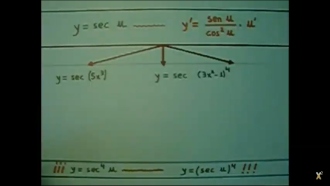 y = sec u —— y' = sen u / cos² u · u'
y = sec (5x³) y = sec (7x²-1)⁴
¡¡¡ y = sec⁴ u —— y = (sec u)⁴ !!!